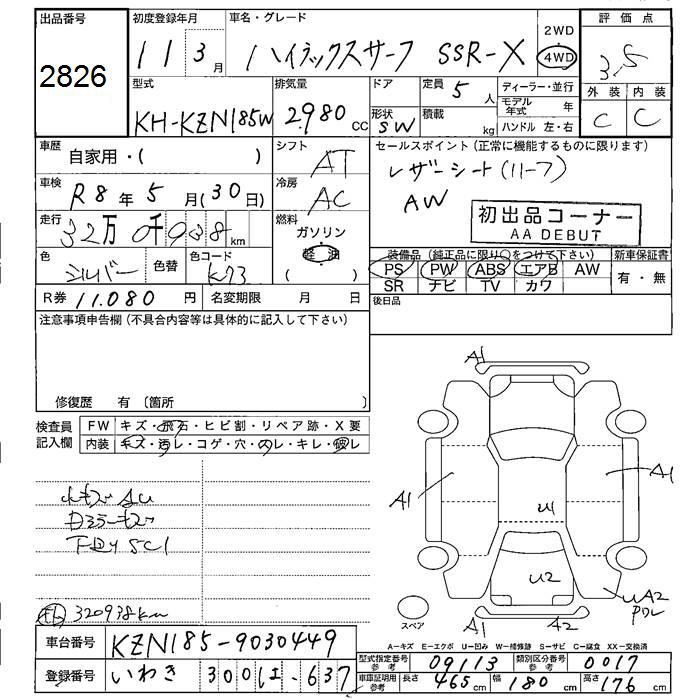 出品番号
2826
初度登録年月
11 3月
車名・グレード
ハイラックスサーフ SSR-X
2WD
4WD
評価点
3.5
外装 内装
C C
型式
KH-KZN185W
排気量
2980cc
ドア
形状
SW
定員 5人
積載 kg
ディーラー・並行
モデル年式 年
ハンドル 左・右
車歴
自家用・( )
シフト
AT
車検
R8年5月(30日)
冷房
AC
走行
32万0千938km
燃料
ガソリン
軽油
( )
色
シルバー
色替
色コード
K73
セールスポイント(正常に機能するものに限ります)
レザーシート(リーフ)
AW
初出品コーナー
AA DEBUT
装備品(純正品に限り○をつけて下さい)
新車保証書
PS PW ABS エアB AW
有・無
SR ナビ TV カワ
後日品
R券 11,080円
名変期限 月 日
注意事項申告欄(不具合内容等は具体的に記入して下さい)
修復歴 有〔箇所 〕
検査員記入欄
FW キズ・飛石・ヒビ割・リペア跡・X要
内装 キズ・汚レ・コゲ・穴・スレ・キレ・破レ
320938km
A1
A1
A1
U1
U2
UA2
PDL
A1
A2
スペア
A-キズ E-エクボ U-凹み W-補修跡 S-サビ C-腐食 XX-交換済
車台番号
KZN185-9030449
登録番号
いわき 300 637
型式指定番号 参考
09113
類別区分番号 参考
0017
車庫証明用 参考
長さ 465cm
幅 180cm
高さ 176cm